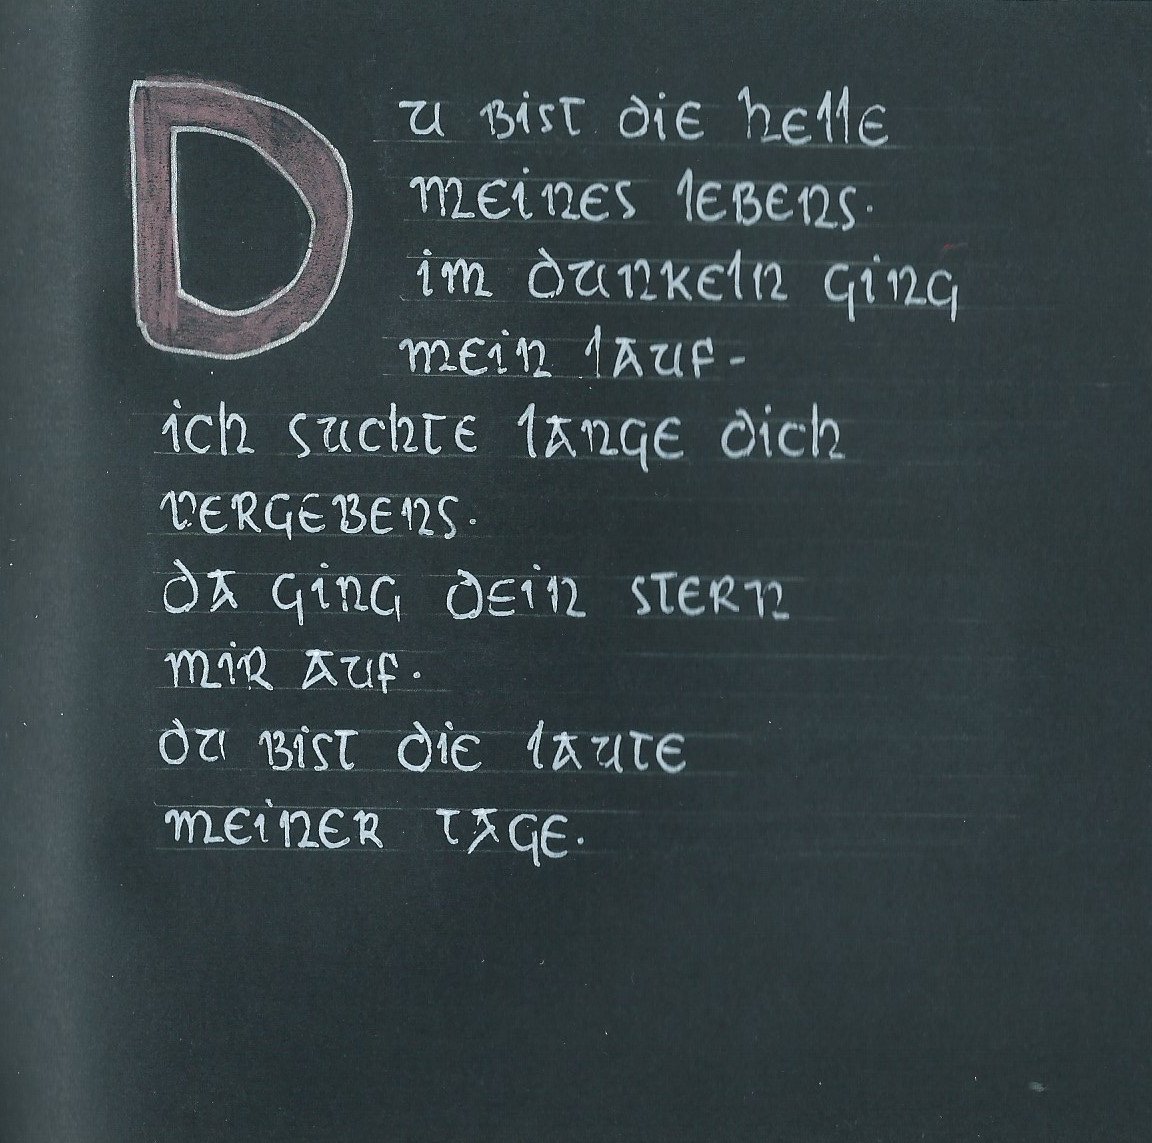 Du bist die helle
meines lebens.
im dunkeln ging
mein lauf-
ich suchte lange dich
vergebens.
da ging dein stern
mir auf.
du bist die laute
meiner tage.